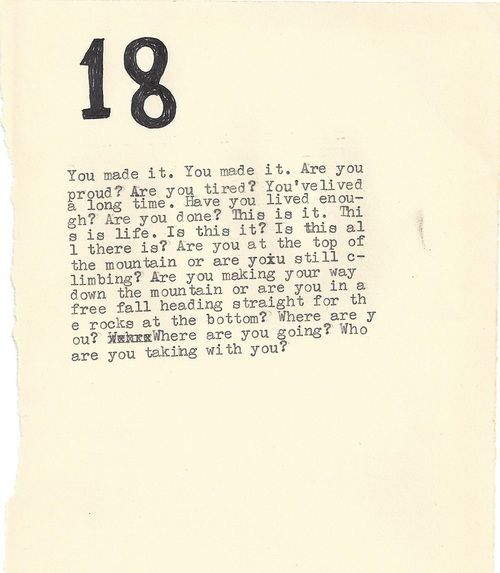 18
You made it. You made it. Are you
proud? Are you tired? You'velived
a long time. Have you lived enou-
gh? Are you done? This is it. Thi
s is life. Is this it? Is this al
l there is? Are you at the top of
the mountain or are yoiu still c-
limbing? Are you making your way
down the mountain or are you in a
free fall heading straight for th
e rocks at the bottom? Where are y
ou? Where are you going? Who
are you taking with you?